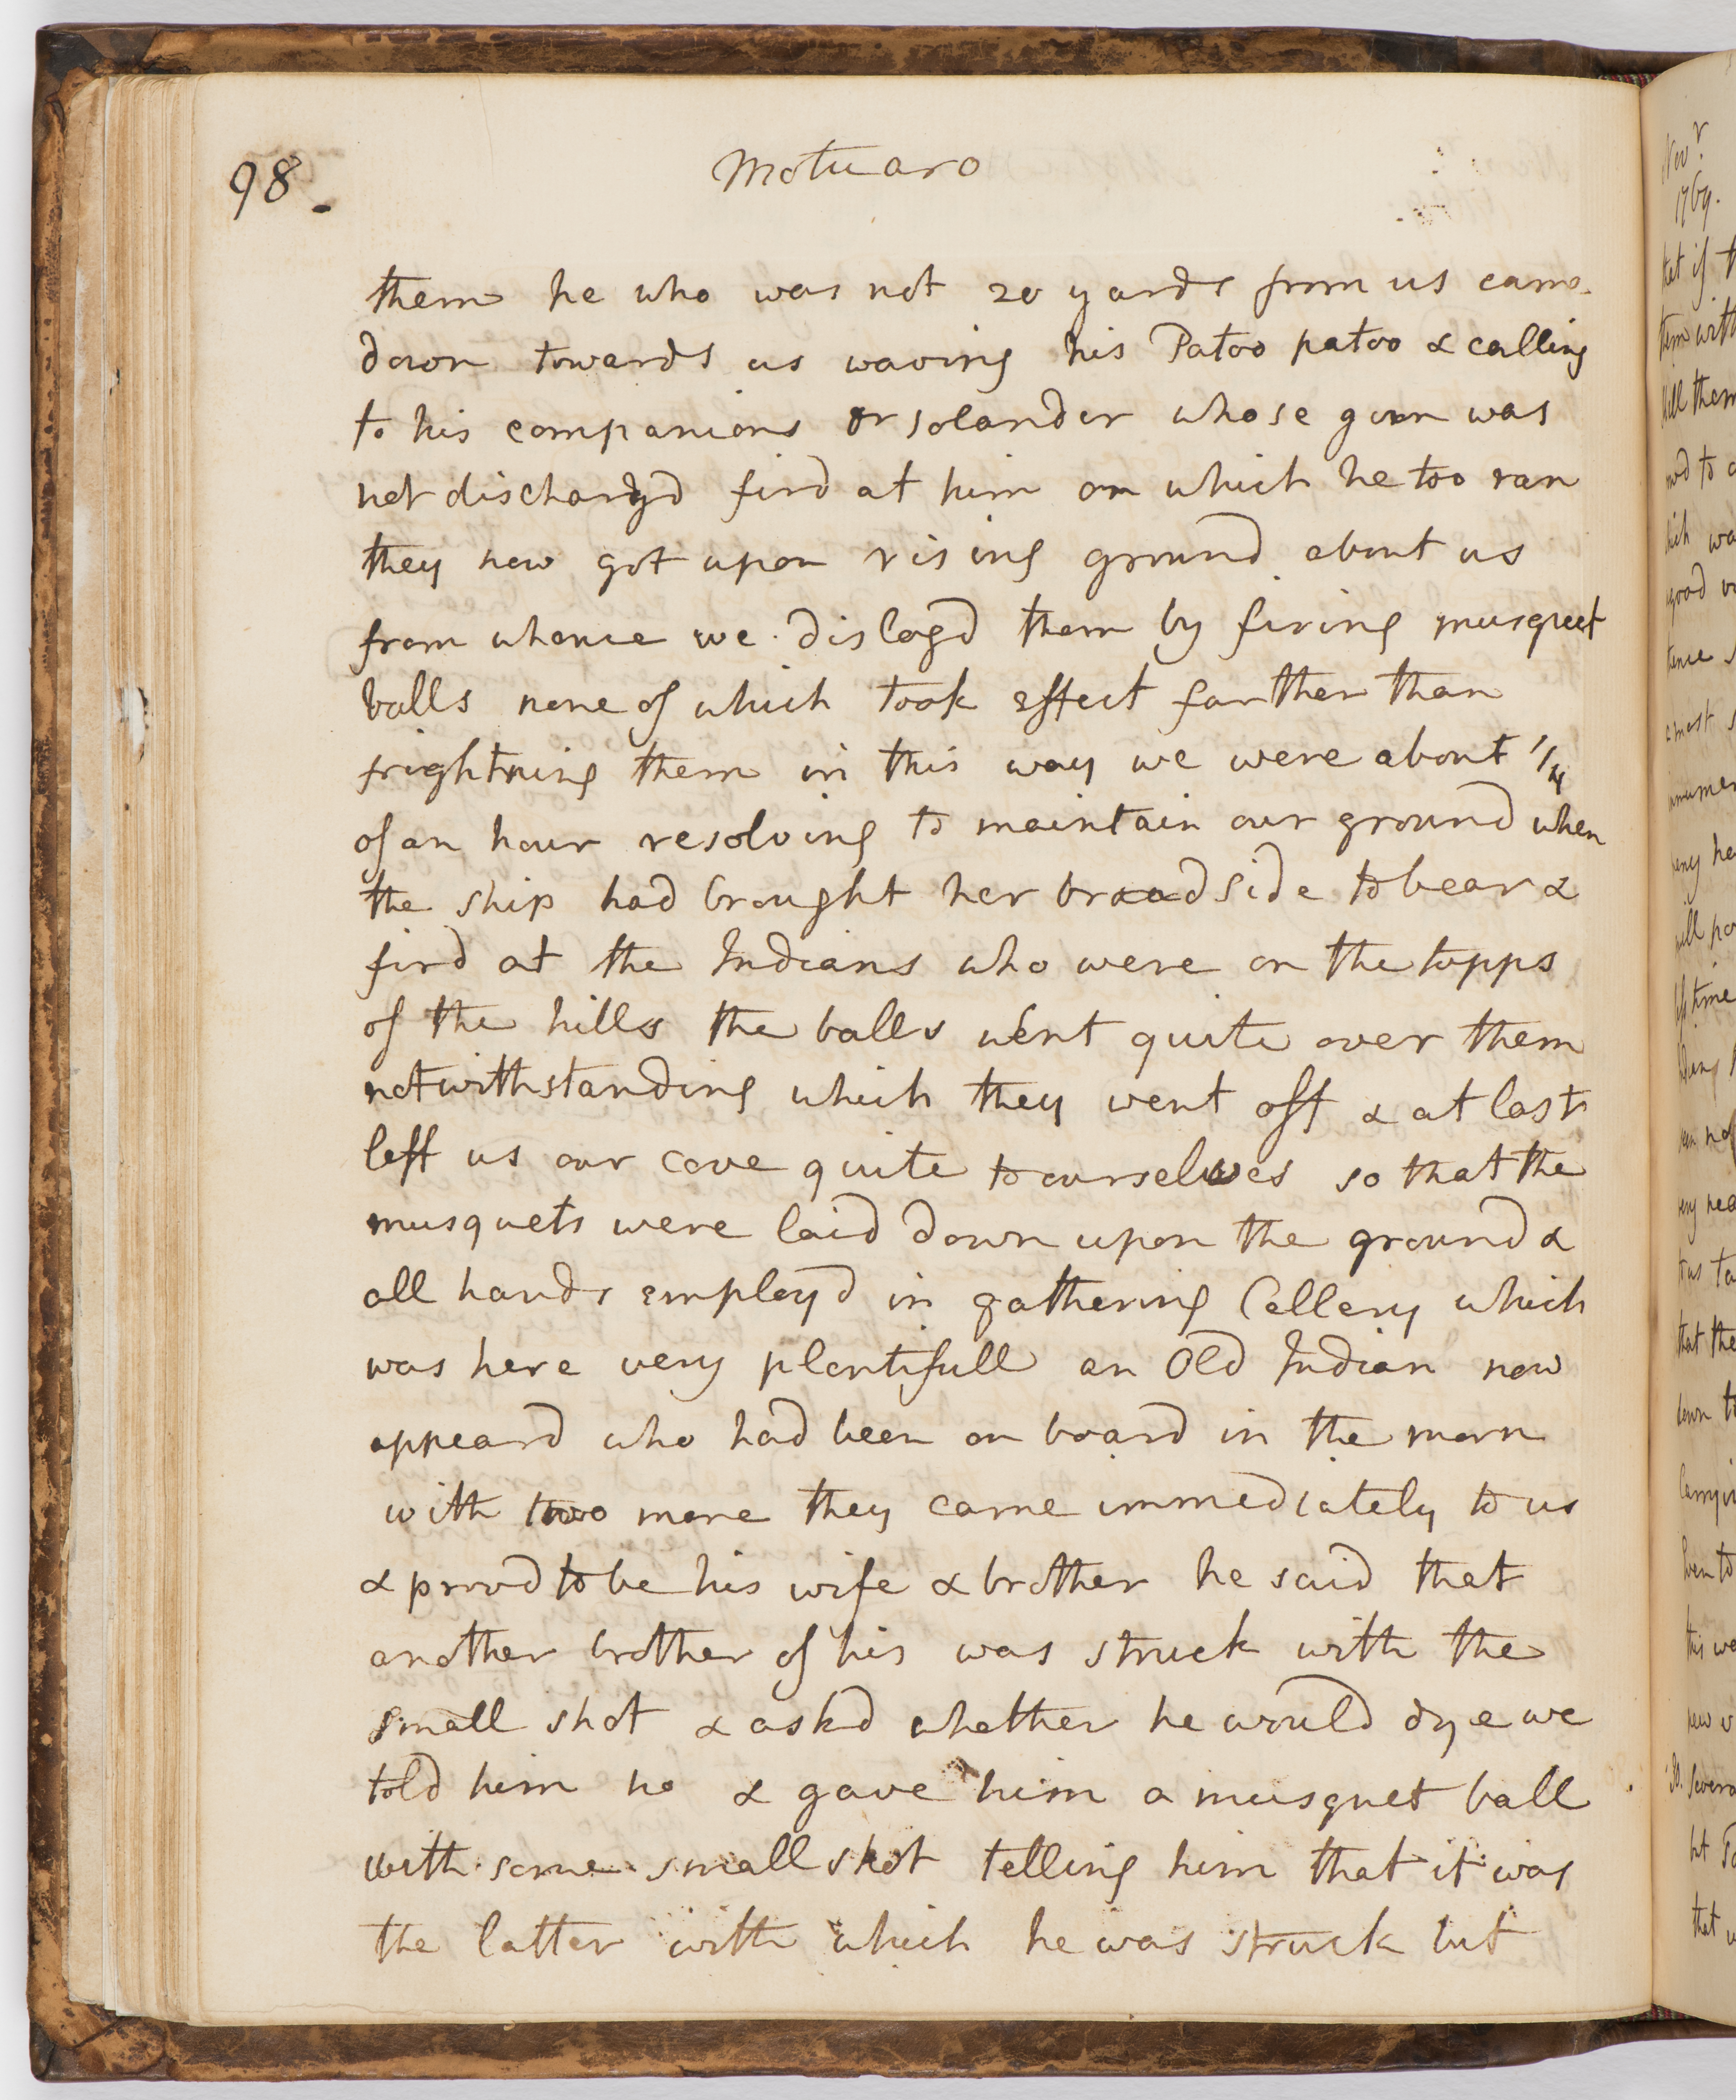 98.
Motuaro
them he who was not 20 yards from us came
down towards us waving his Patoo patoo & calling
to his companions Dr Solander whose gun was
not dischargd fird at him on which he too ran
they now got upon rising ground about us
from whence we dislogd them by firing musquet
balls none of which took effect farther than
frightning them in this way we were about 1/4
of an hour resolving to maintain our ground when
the ship had brought her broadside to bear &
fird at the Indians who were on the topps
of the hills the balls went quite over them
notwithstanding which they went off & at last
left us our cove quite to ourselves so that the
musquets were laid down upon the ground &
all hands employd in gathering Cellery which
was here very plentifull an Old Indian now
appeard who had been on board in the morn
with two more they came immediately to us
& provd to be his wife & brother he said that
another brother of his was struck with the
small shot & askd whether he would dye we
told him no & gave him a musquet ball
with some small shot telling him that it was
the latter with which he was struck but
Novr
1769.
that if
them with
kill them